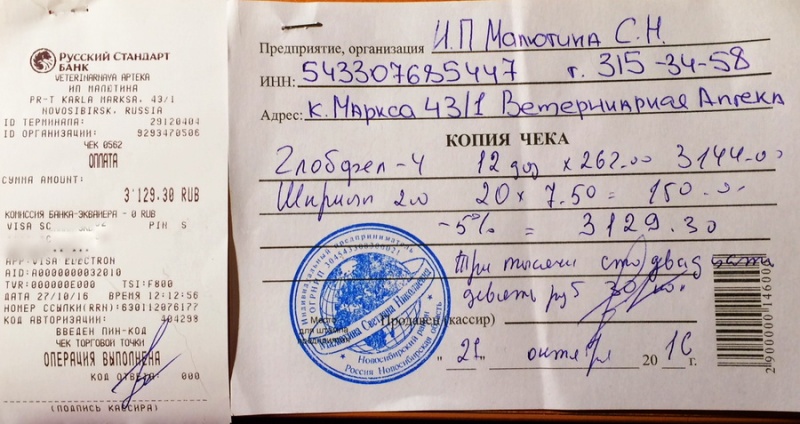 Русский Стандарт
БАНК
VETERINARNAYA APTEKA
ИП МАЛЕТИНА
PR-T KARLA MARKSA, 43/1
NOVOSIBIRSK, RUSSIA
ID ТЕРМИНАЛА: 29120404
ID ОРГАНИЗАЦИИ: 9293470506
ЧЕК 0562
ОПЛАТА
СУММА AMOUNT:
3'129.30 RUB
КОМИССИЯ БАНКА-ЭКВАЙЕРА - 0 RUB
VISA
APP-VISA ELECTRON
AID:A0000000032010
TVR:000000E000 TSI:F800
ДАТА 27/10/16 ВРЕМЯ 12:12:56
НОМЕР ССЫЛКИ(RRN):
КОД АВТОРИЗАЦИИ: 404299
ВВЕДЕН ПИН-КОД
ЧЕК ТОРГОВОЙ ТОЧКИ
ОПЕРАЦИЯ ВЫПОЛНЕНА
КОД ОТВЕТА: 000
(ПОДПИСЬ КАССИРА)
Предприятие, организация И.П Малютина С.Н.
ИНН: 543307685447 т. 315-34-58
Адрес: К. Маркса 43/1 Ветеринарная Аптека
КОПИЯ ЧЕКА
Глобфел-4 12 доз x 262.00 3144.00
20 x 7.50 = 150.00
-5% = 3129.30
Три тысячи сто двадцать
девять руб 30
Индивидуальный предприниматель
ОГРНИП 304543300300021
Светлана Николаевна
Новосибирский район
Россия Новосибирская область
Место
для штампа
Продавец (кассир)
" октября 2016 г.